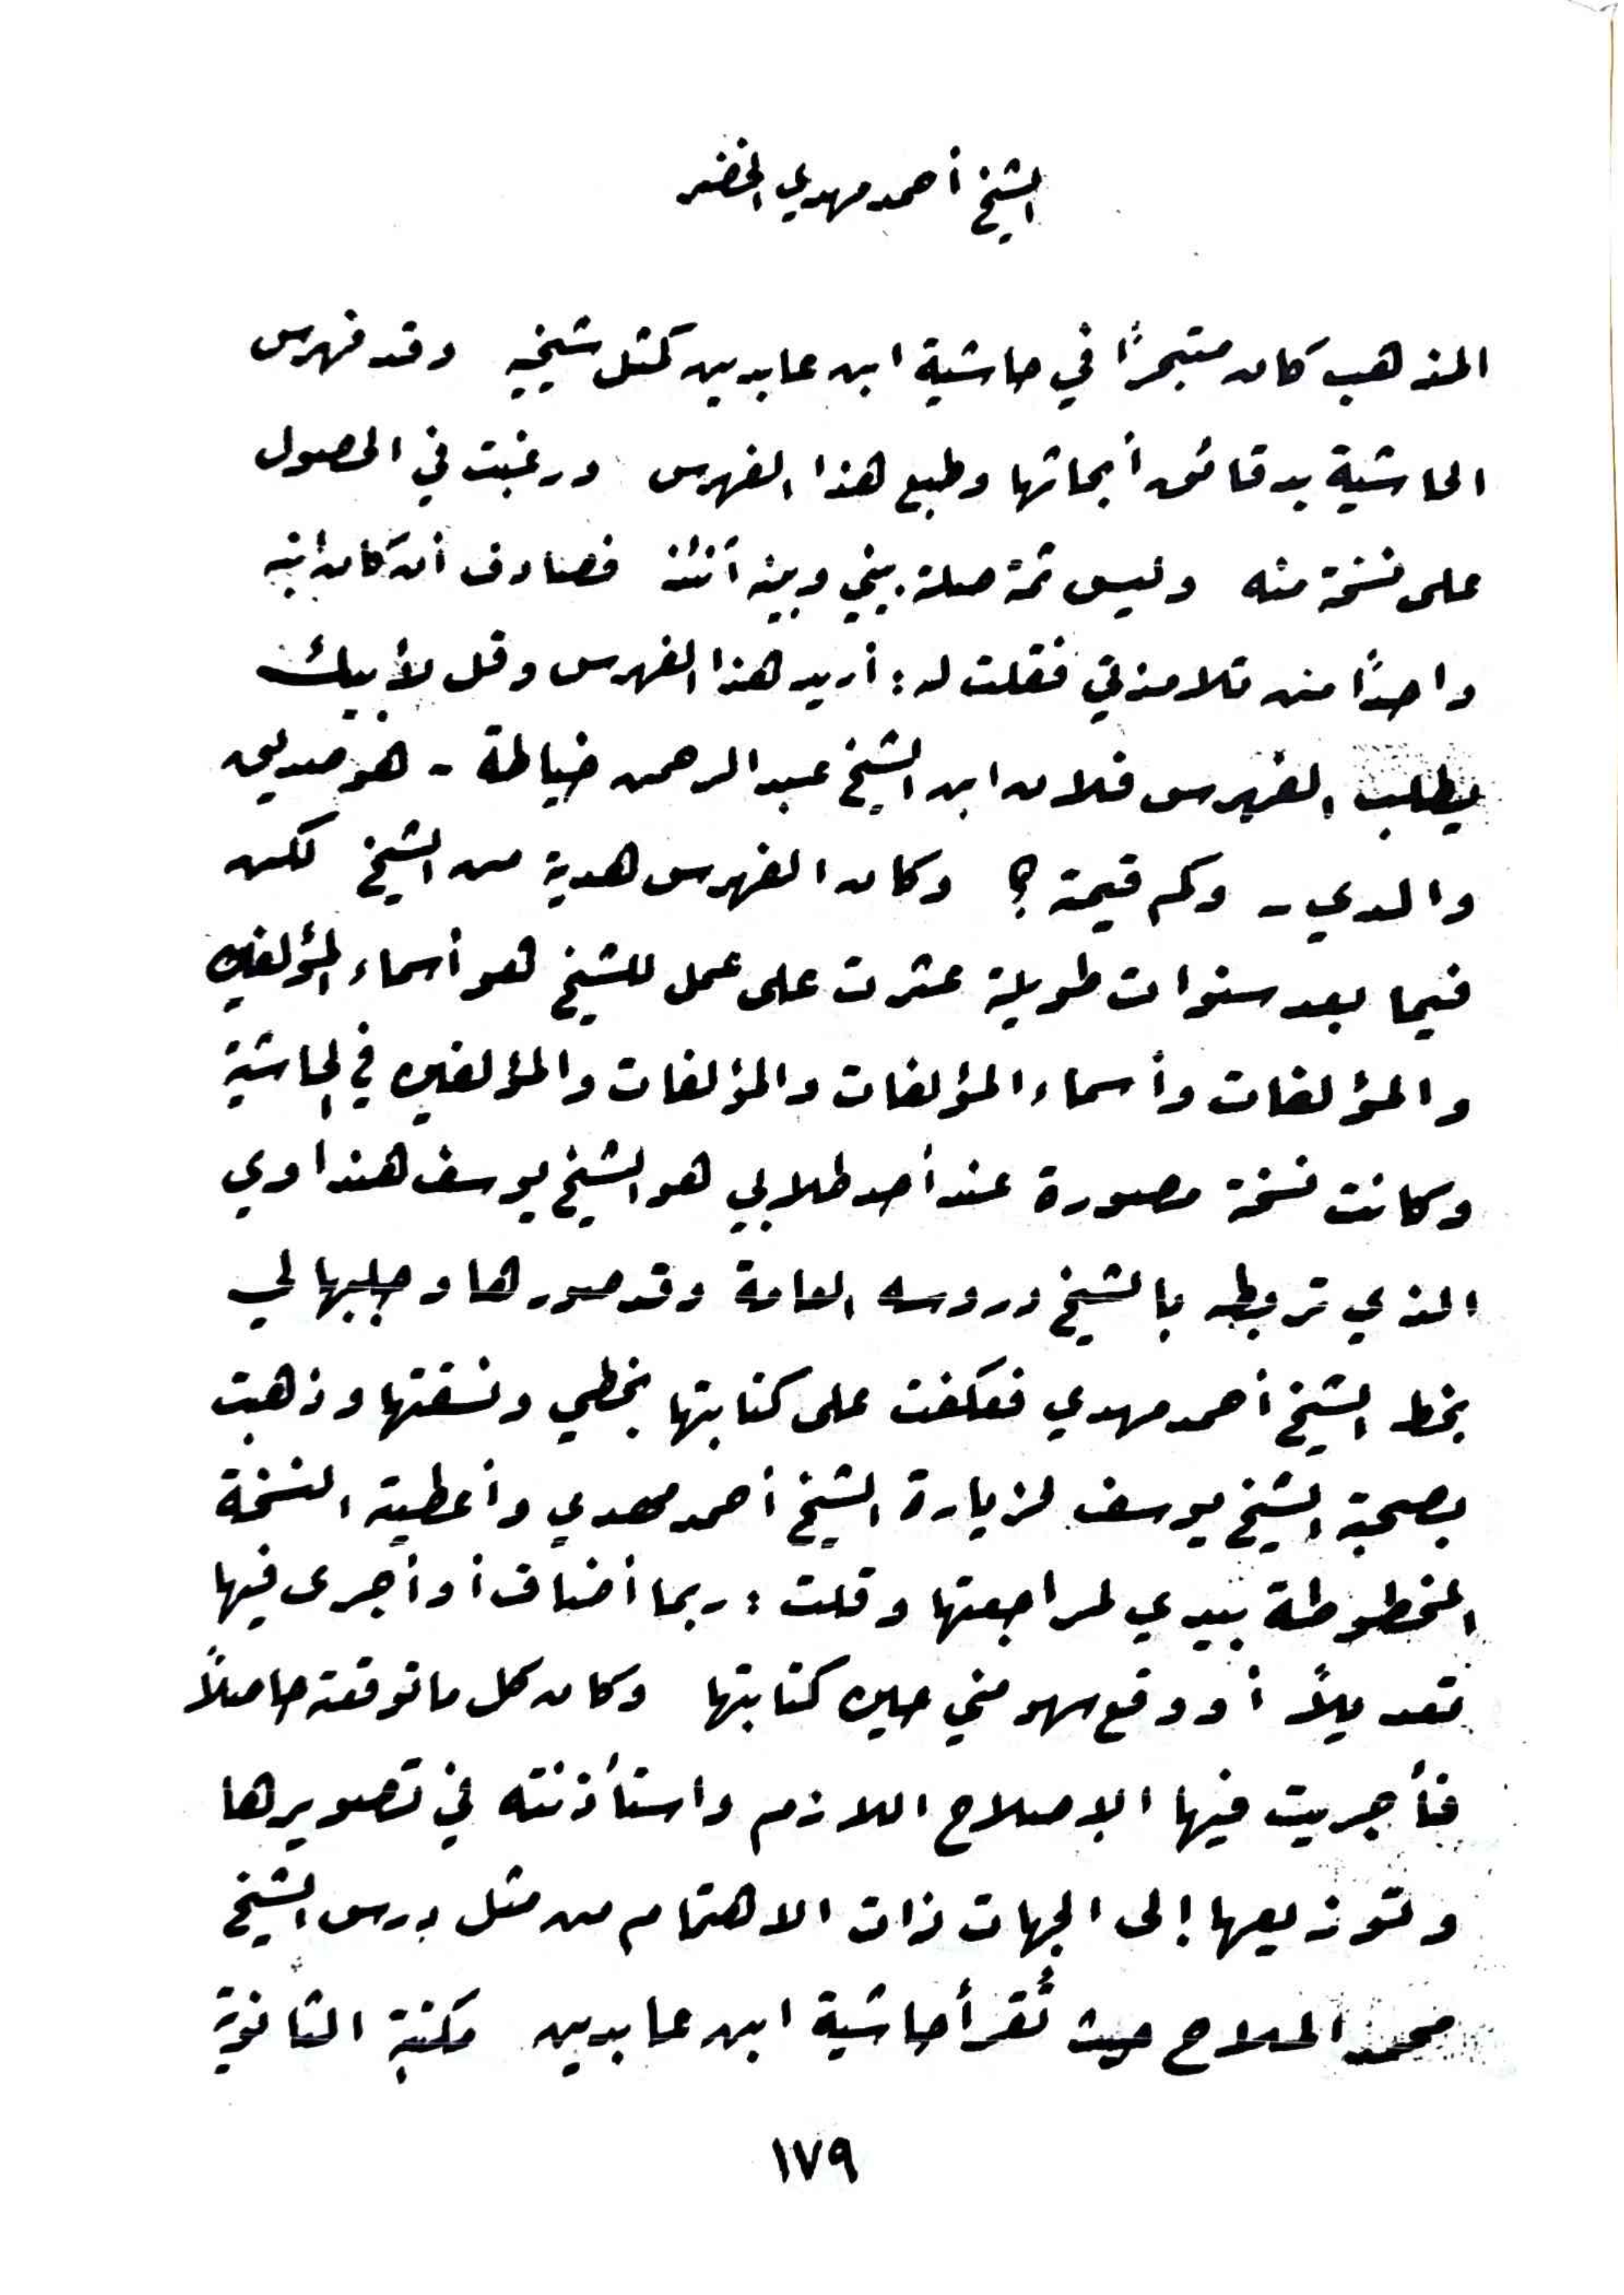 الشيخ أحمد مهدي الخضر
المذهب كان متبحرًا في حاشية ابن عابدين كمثل شيخيه وقد فهرس
الحاشية بدقائق أبحاثها وطبع هذا الفهرس ورغبت في الحصول
على نسخة منه وليس ثمة صلة بيني وبينه آنئذ فصادف أن كان ابنه
واحدًا من تلامذتي فقلت له : أريد هذا الفهرس وقل لأبيك
يطلب الفهرس فلان ابن الشيخ عبد الرحمن خياطة - هو صديق
والدي - وكم قيمته ؟ وكان الفهرس هدية من الشيخ لكن
فيما بعد سنوات طويلة عثرت على عمل للشيخ هو أسماء المؤلفين
والمؤلفات وأسماء المؤلفات والمؤلفات والمؤلفين في الحاشية
وكانت نسخة مصورة عند أحد طلابي هو الشيخ يوسف هنداوي
الذي تربطه بالشيخ دروسه العامة وقد صورها وجلبها لي
بخط الشيخ أحمد مهدي فعكفت على كتابتها بخطي ونسقتها وذهبت
بصحبة الشيخ يوسف لزيارة الشيخ أحمد مهدي وأعطيته النسخة
المخطوطة بيدي لمراجعتها وقلت : ربما أضاف أو أجرى فيها
تعديلاً أو وقع سهو مني حين كتابتها وكان كل ما توقعته حاصلاً
فأجريت فيها الإصلاح اللازم واستأذنته في تصويرها
وتوزيعها إلى الجهات ذات الاهتمام من مثل درس الشيخ
محمد الملاح حيث تُقرأ حاشية ابن عابدين مكتبة الثانوية
١٧٩